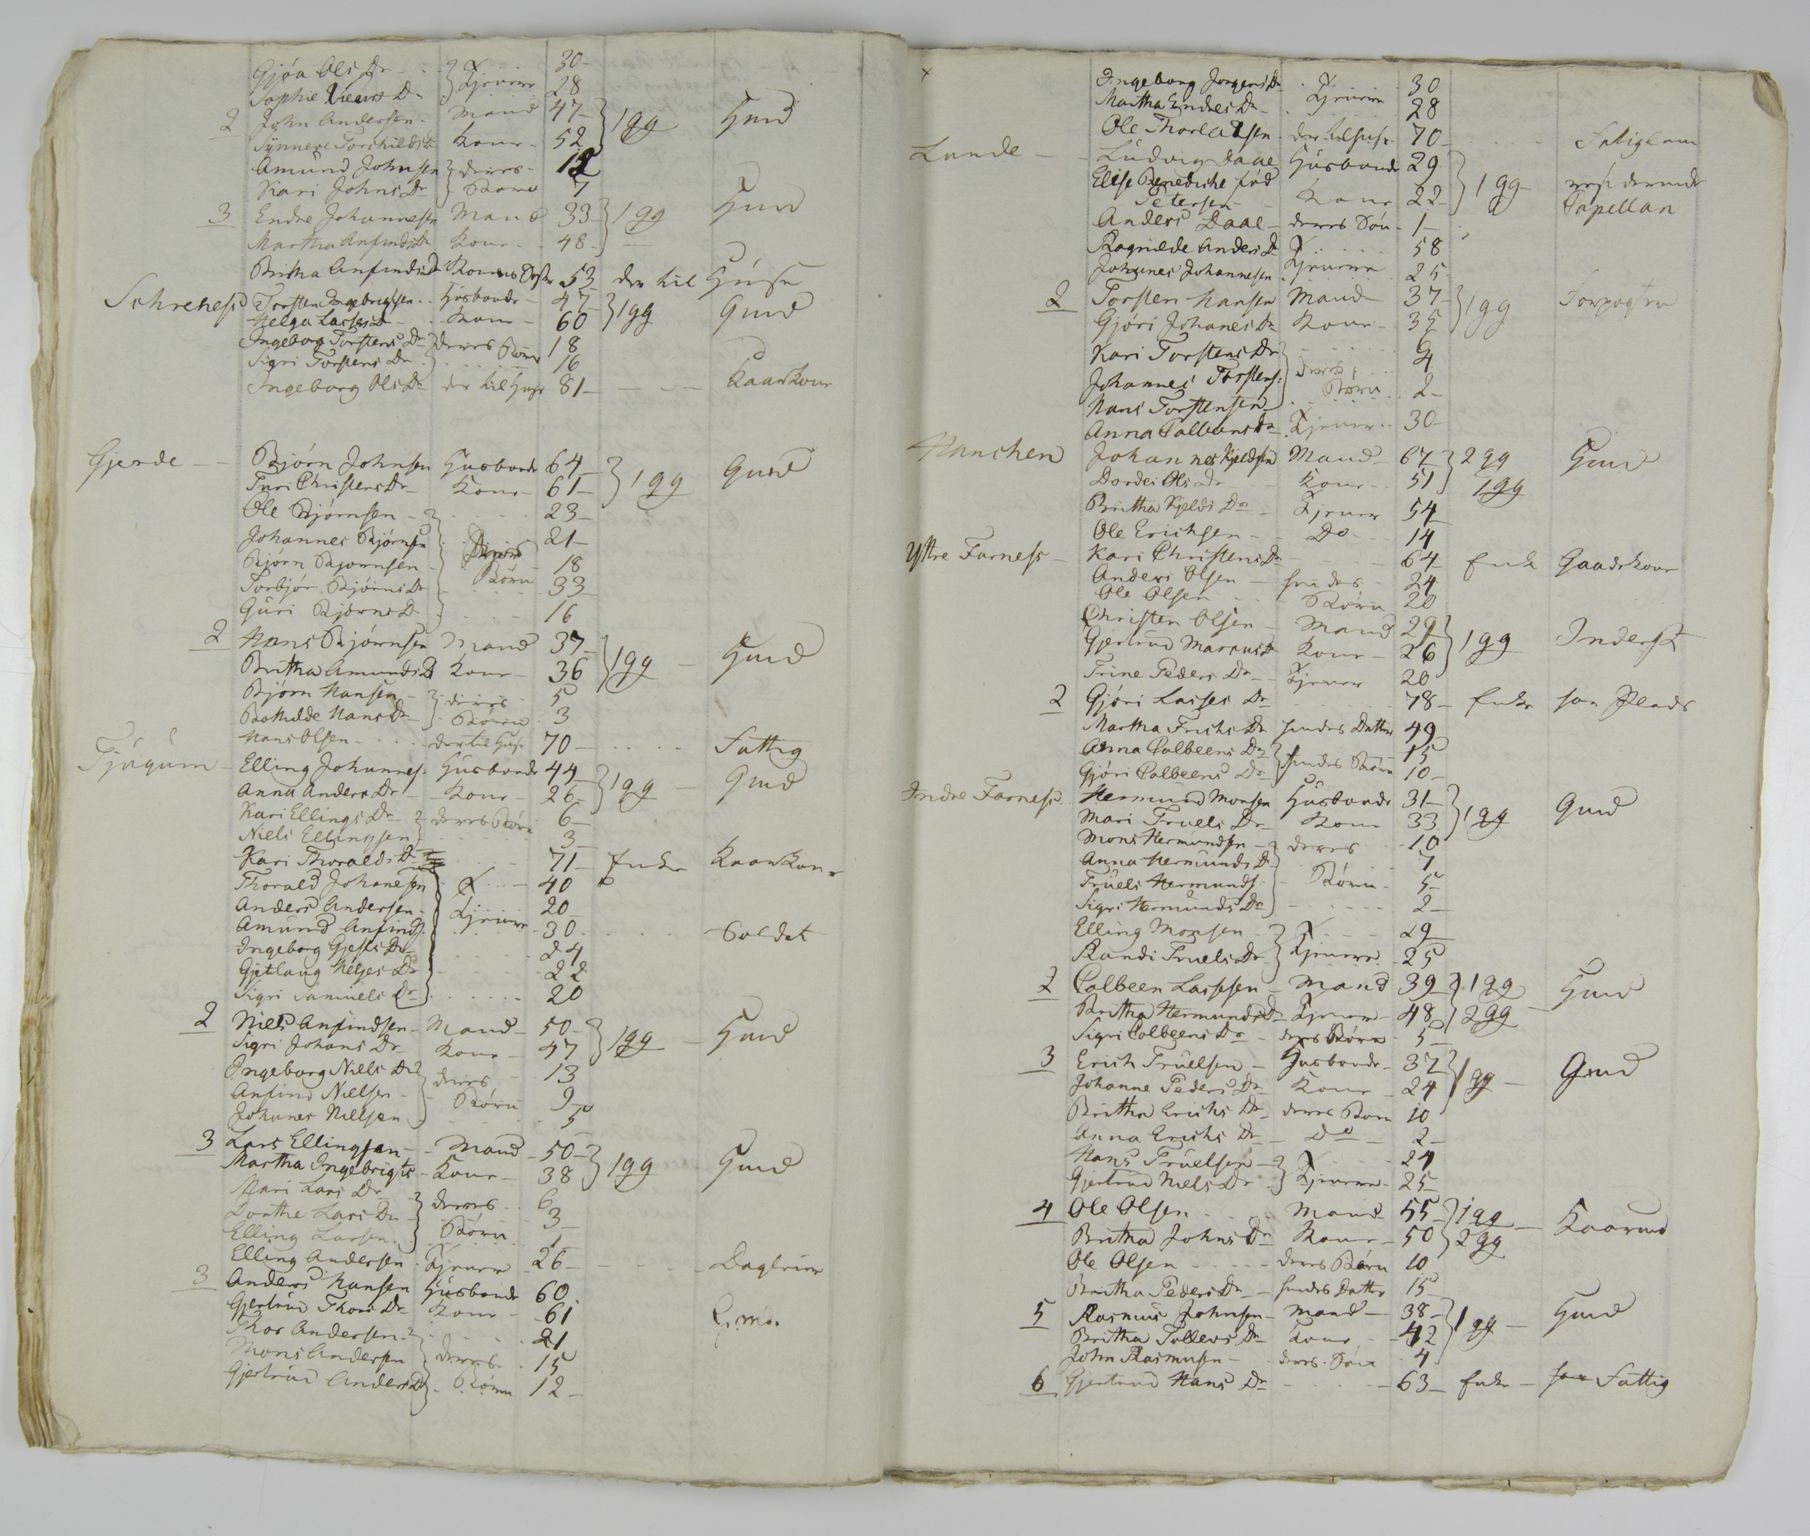 Gjóa Ols Dr } 30
Sophie Dr } Tjenere 28
2 John Andersen Mand 47 } 1 gg Gmd
Synneve Torchilds Dr Kone 52
Amund Johnsen } deres 12
Kari Johns Dr } Børn 7
3 Endre Johannesen Mand 33 } 1 gg Gmd
Martha Anfinds Dr Kone 48
Britha Anfinds Dr Konens 53 der til Húse
Torsten Ingebrigtsen Húsbonde 47 } 1gg Gmd
Helga Lasses Dr Kone 60
Ingeborg Torstens Dr } deres Børn 18
Sigri Torstens Dr } 16
Ingeborg Ols Dr der til Huse 81 Kaarkone
Gjerde Bjørn Johnsen Húsbonde 64 } 1 gg Gmd
Turi Christens Dr Kone 61
Ole Bjørnsen 23
Johannes Bjørnsen 21
Bjørn Bjørnsen deres Børn 18
Torbjør Bjørns Dr 33
Gúri Bjørns Dr 16
2 Hans Bjørnsen Mand 37 } 1gg Gmd
Britha Amunds Dr Kone 36
Bjørn Hansen } deres 5
Bothilde Hans Dr } Børn 3
Hans Olsen der til Huse 70 Fattig
Tjúgúm Elling Johannes. Húsbonde 44 } 1gg Gmd
Anna Anders Dr Kone 26
Kari Ellings Dr } deres Børn 6
Niels Ellingsen } 3
Kari Thoralds Dr 71 Enke Kaarkone
Thorald Johanesen 40
Anders Andersen Tjenere 20
Amund Anfinds. 30 Soldat
Ingeborg Dr 24
Gjetlaug Helges Dr 22
Sigri Samuels Dr 20
2 Niels Anfindsen Mand 50 } 1gg Gmd
Sigri Johans Dr Kone 47
Ingeborg Niels Dr } deres 13
Anfind Nielsen } Børn 9
Johanes Nielsen } 5
3 Lars Ellingsen Mand 50 } 1gg Gmd
Martha Ingebrigts Kone 38
Mari Lars Dr } deres 6
Dorthe Lars Dr } Børn 3
Elling Larsen } 1
Elling Andersen Tjener 26
3 Anders Hansen Húsbonde 60
Gjertrud Thors Dr Kone 61
Thor Andersen } 21
Mons Andersen } deres 15
Gjertrúd Anders Dr } Børn 12
Ingeborg Jorgens Dr 30
Martha Endres Dr Tjenere 28
Ole Thorlaksen der til huse 70
Lunde Lúdvig Daae Húsbonde 29 } 1 gg residerende Capellan
Elise Benedicte fød
Petersen Kone 22
Anders Daae deres Søn 1
Ragnilde Anders Dr 58
Johanes Johannesen Tjenere 25
2 Torsten Hansen Mand 37 } 1gg
Gjóri Johanes Dr Kone 35
Kari Torstens Dr } 6
Johannes Torstens. } deres 4
Hans Torstensen } Børn 2
Anna Colbens Dr Tjener 30
Johannes Kjeldsen Mand 67 } 2gg Gmd
Dordei Ols Dr Kone 51 } 1gg
Britha Kjelds Dr Tjener 54
Ole Erichsen Do 14
Yttre Farness Kari Christens Dr 64 Enke Gaardkone
Anders Olsen hendes 24
Ole Olsen Børn 20
Christen Olsen Mand 29 } 1gg Inderst
Gjertrud Marcus Dr Kone 26
Trine Peders Dr Tjener 20
2 Gjóri Lasses Dr 78 Enke paa Plads
Martha Erichs Dr hendes Datter 49
Anna Colbeens Dr } hendes Børn 15
Gjóri Colbeens Dr } 10
Indre Farness Hermund Monsen Húsbonde 31 } 1gg Gmd
Mari Truels Dr Kone 33
Mons Hermundsen deres 10
Anna Hermunds Dr 7
Truels Hermunds. Børn 5
Sigri Hermunds Dr 2
Elling Monsen 29
Randi Truels Dr Tjenere 25
2 Colbeen Lassesen Mand 39 } 1gg Gmd
Britha Hermunds Dr Tjener 48 } 2gg
Sigri Colbeens Dr deres Børn 5
3 Erich Truelsen Husbonde 37 } 1 gg Gmd
Johanne Peders Dr Kone 24
Britha Erichs Dr deres Børn 10
Anna Erichs Dr Do 2
Hans Truelsen 24
Gjertrud Niels Dr Tjenere 25
4 Ole Olsen Mand 55 } 1gg Kaarmd
Britha Johns Dr Kone 50 } 2gg
Ole Olsen deres Børn 10
Britha Peders Dr hendes Datter 15
5 Rasmus Johnsen Mand 38 } 1gg Gmd
Britha Tollevs Dr Kone 42
John Rasmusen deres Børn 4
6 Gjertrud Hans Dr 63 Enke Fattig